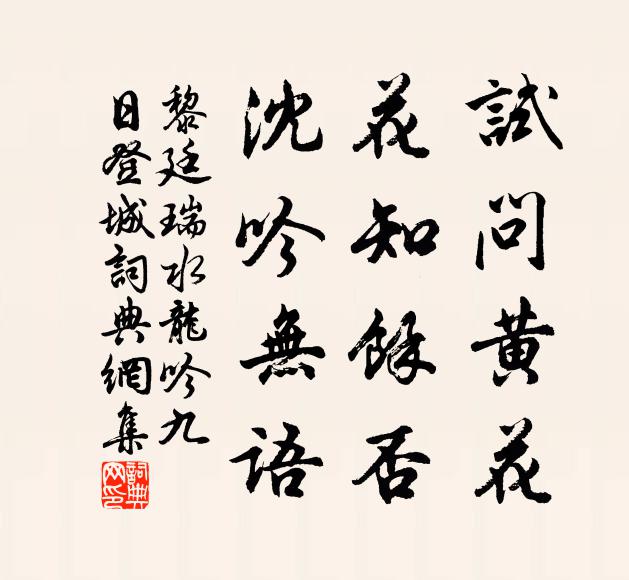 試問黄花
花知餘否
沈吟無語
黎廷瑞水龍吟九
日登城詞典網集
詞典网印